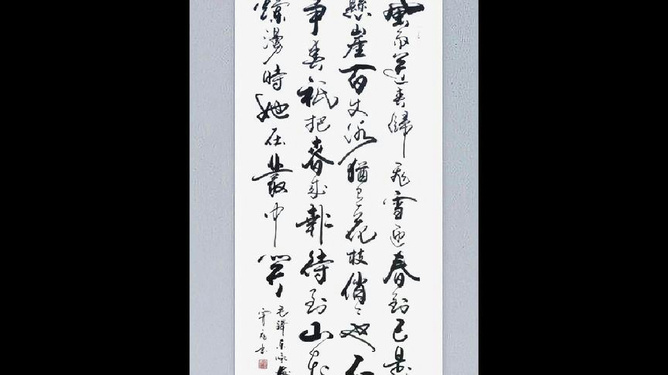 風雨送春歸飛雪迎春到已是
懸崖百丈冰猶有花枝俏俏也不
爭春祇把春來報待到山花
爛漫時她在叢中笑
毛澤東詠梅